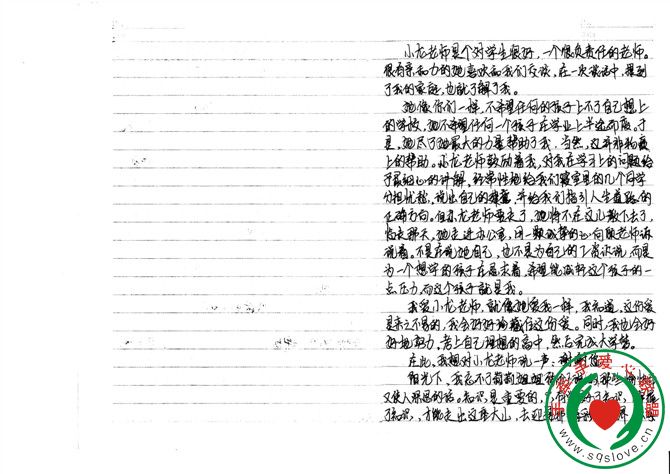 小龙老师是个对学生很好，一个很负责任的老师。
很有亲和力的她喜欢和我们交谈，在一次谈话中，提到
了我的家庭，也就了解了我。
她像你们一样，不希望任何的孩子上不了自己想上
的学校，她不希望任何一个孩子在学业上半途而废，于
是，她尽了她最大的力量帮助了我，当然，这并非物质
上的帮助。小龙老师鼓励着我，对我在学习上的问题给
了最细心的讲解，经常性地给我们寝室里的几个同学
分担忧愁，说出自己的，并给我们指引人生道路的
正确方向。但小龙老师要走了，她将不在这儿教下去了，
临走那天，她走进办公室，用一颗诚挚的心向殷老师诉
说着。不是在说她自己，也不是为自己的工资诉说，而是
为一个想学的孩子在恳求着，希望能减轻这个孩子的一
点压力，而这个孩子就是我。
我爱小龙老师，就像她爱我一样，我知道，这份爱
是来之不易的，我会好好珍藏住这份爱。同时，我也会好
好地努力，考上自己理想的高中，然后完成大学梦。
在此，我想对小龙老师说一声：谢谢您
阳光下，我忘不了姐姐那些
又使人深思的话。知识是重要的，知识，
了知识，才能走出这座大山，去迎
手牵手爱心联盟
www.sqslove.cn